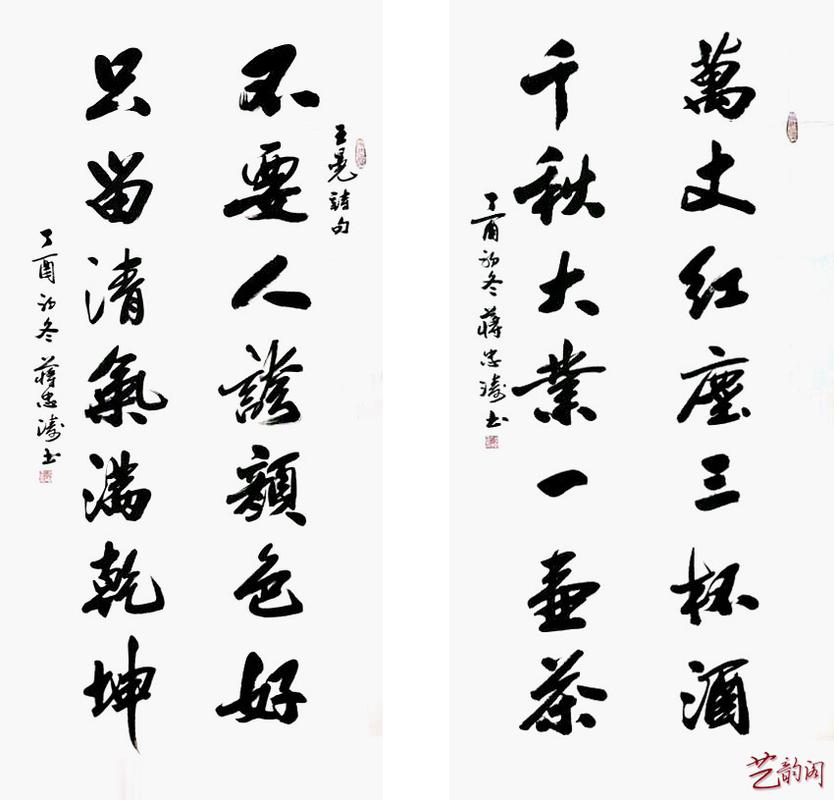 萬丈红塵三杯酒
千秋大業一壺茶
丁酉初冬蔣忠濤书
王冕詩句
不要人誇顔色好
只留清氣满乾坤
丁酉初冬蔣忠濤书
艺韵阁